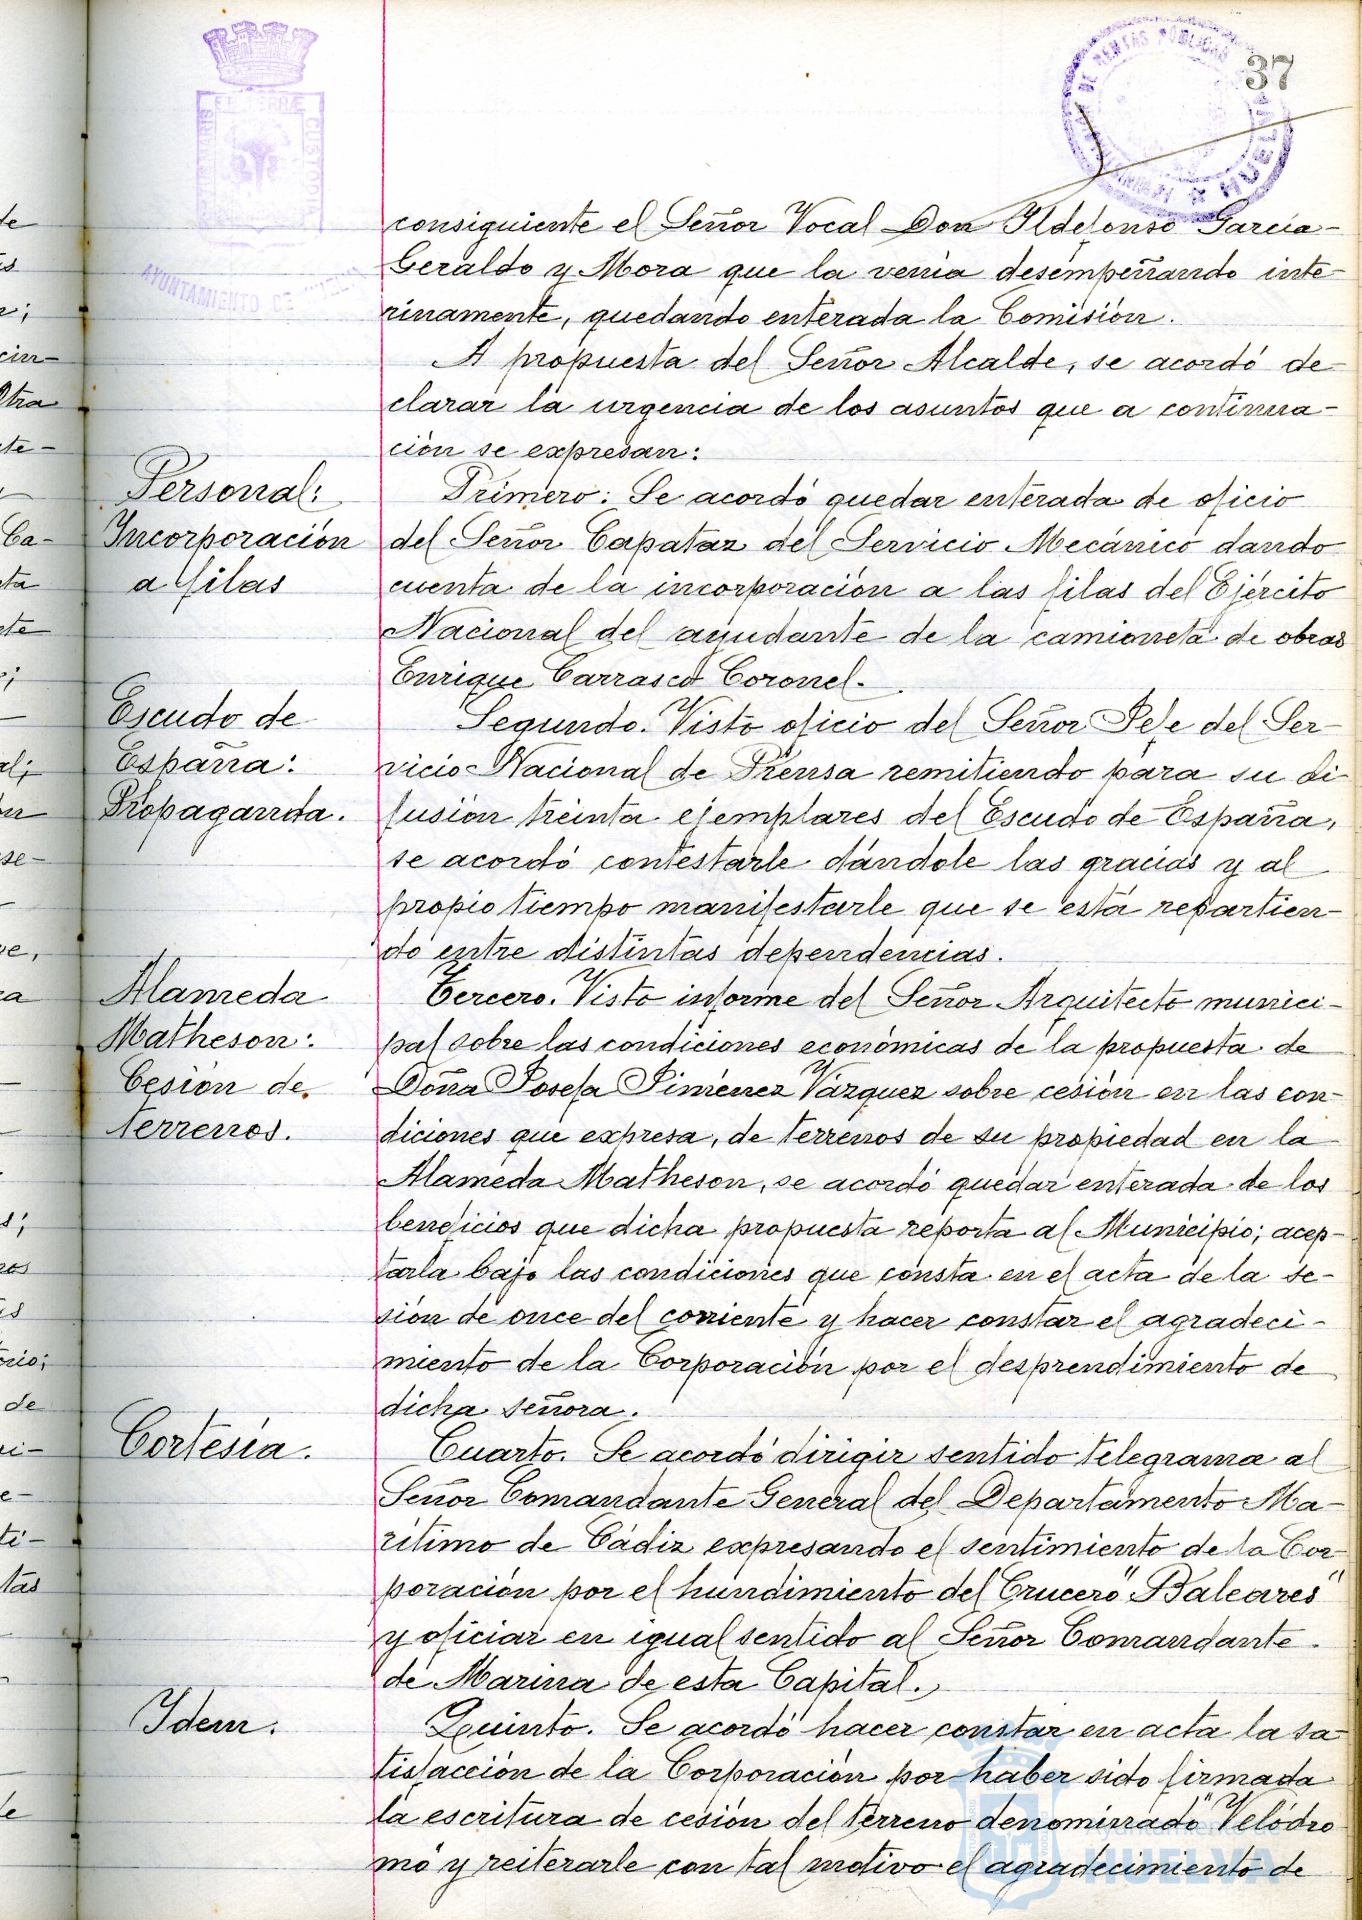 37
PORTUS MARIS ET TERRAE CUSTODIA
AYUNTAMIENTO DE HUELVA
DE RENTAS PUBLICAS
HUELVA
consiguiente el Señor Vocal Don Ildefonso García-
Geraldo y Mora que la venia desempeñando inte-
rinamente, quedando enterada la Comisión.
A propuesta del Señor Alcalde, se acordó de
clarar la urgencia de los asuntos que a continua-
ción se expresan:
Personal:
Incorporación
a filas
Primero: Se acordó quedar enterada de oficio
del Señor Capataz del Servicio Mecánico dando
cuenta de la incorporación a las filas del Ejército
Nacional del ayudante de la camioneta de obras
Enrique Carrasco Coronel.
Escudo de
España:
Propaganda.
Segundo. Visto oficio del Señor Jefe del Ser-
vicio Nacional de Prensa remitiendo para su di
fusión treinta ejemplares del Escudo de España,
se acordó contestarle dándole las gracias y al
propio tiempo manifestarle que se está repartien-
do entre distintas dependencias.
Alameda
Matheson:
Cesión de
terrenos.
Tercero. Visto informe del Señor Arquitecto munici-
pal sobre las condiciones económicas de la propuesta de
Doña Josefa Jiménez Vázquez sobre cesión en las con-
diciones que expresa, de terrenos de su propiedad en la
Alameda Matheson, se acordó quedar enterada de los
beneficios que dicha propuesta reporta al Municipio; acep-
tarla bajo las condiciones que consta en el acta de la se-
sión de once del corriente y hacer constar el agradeci-
miento de la Corporación por el desprendimiento de
dicha señora.
Cortesía.
Cuarto. Se acordó dirigir sentido telegrama al
Señor Comandante General del Departamento Ma-
rítimo de Cádiz expresando el sentimiento de la Cor-
poración por el hundimiento del Crucero "Baleares"
y oficiar en igual sentido al Señor Comandante
de Marina de esta Capital.
Idem.
Quinto. Se acordó hacer constar en acta la sa-
tisfacción de la Corporación por haber sido firmada
la escritura de cesión del terreno denominado "Velódro
mo y reiterarle con tal motivo el agradecimiento de
Ayuntamiento de
HUELVA